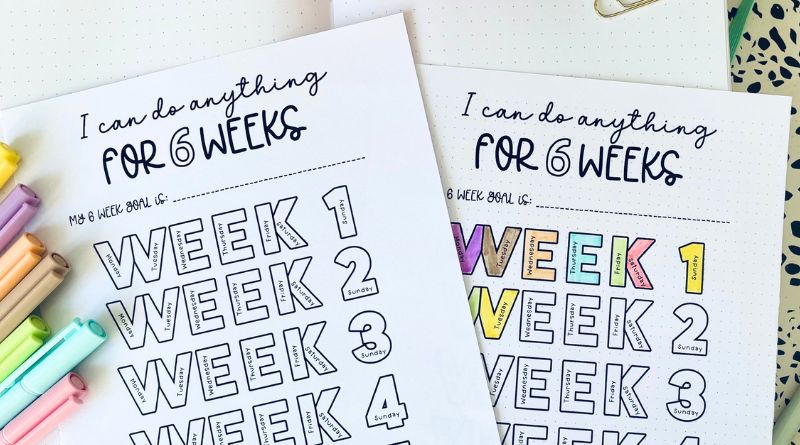 I can do anything
FOR 6 WEEKS
MY 6 WEEK GOAL IS:
WEEK 1
Monday Tuesday Wednesday Thursday Friday Saturday Sunday
WEEK 2
Monday Tuesday Wednesday Thursday Friday Saturday Sunday
WEEK 3
Monday Tuesday Wednesday Thursday Friday Saturday Sunday
WEEK 4
Sunday
I can do anything
FOR 6 WEEKS
6 WEEK GOAL IS:
WEEK 1
Monday Tuesday Wednesday Thursday Friday Saturday Sunday
WEEK 2
Tuesday Wednesday Thursday Friday Saturday Sunday
WEEK 3
Tuesday Wednesday Thursday Friday Saturday Sunday